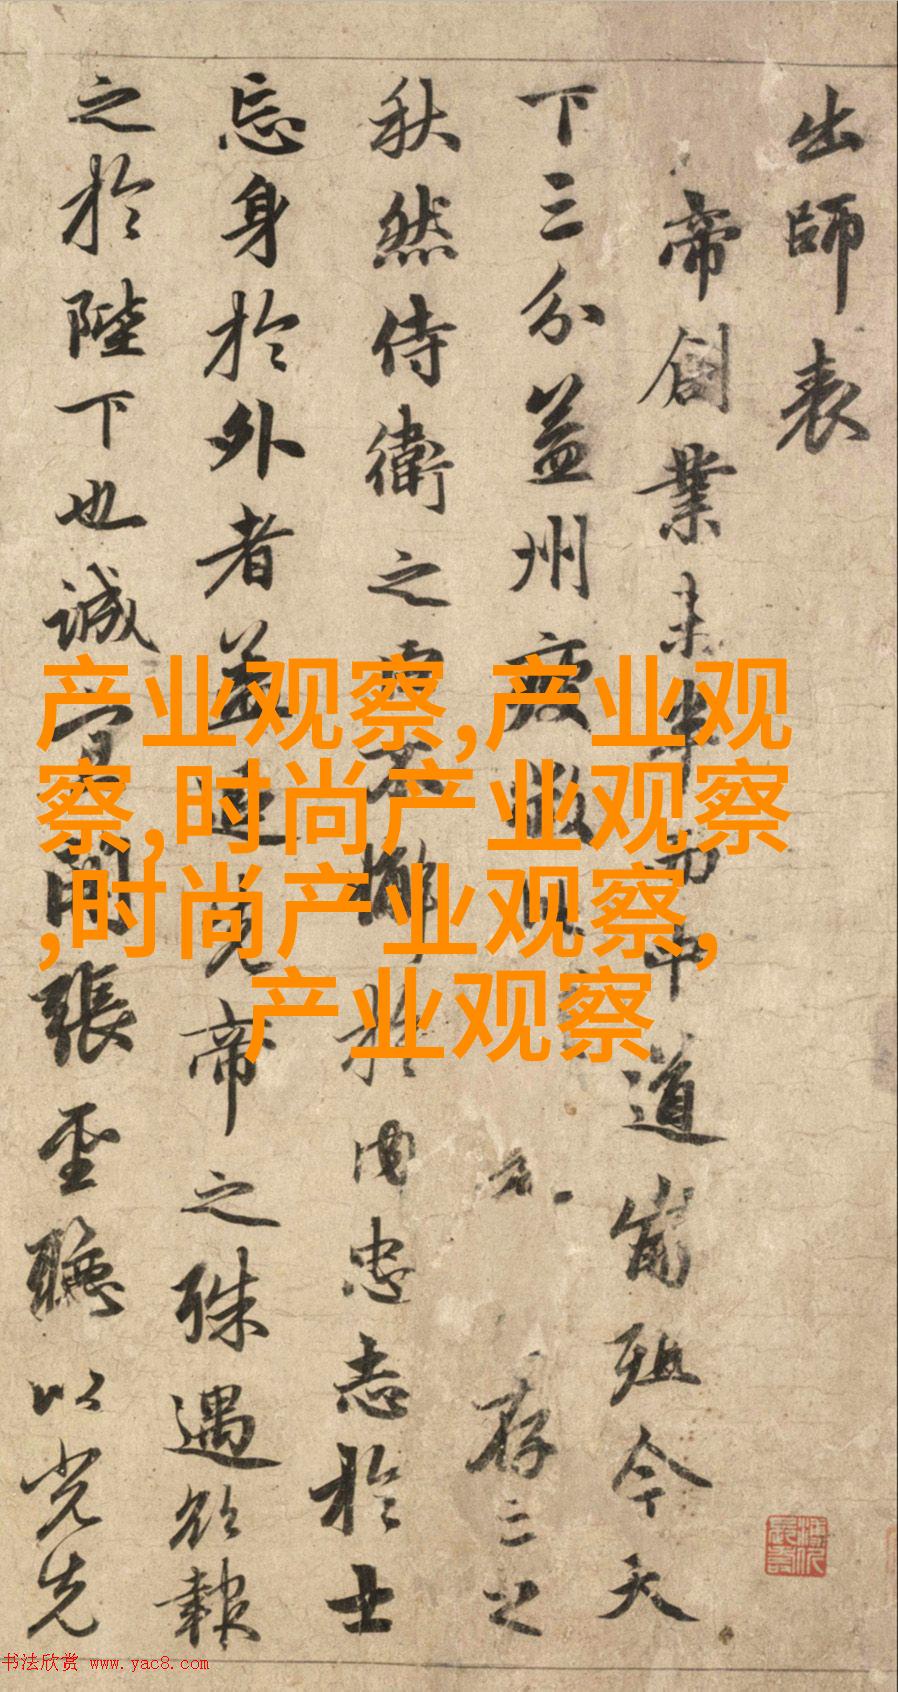 出師表
帝創業未半而中道崩殂今天
下三分益州疲敝此存亡之
秋然侍衛之臣不懈於內忠志於士
忘身於外者蓋追先帝之殊遇欲報
之於陛下也誠宜開張聖聽以光先
产业观察,产业观
察,时尚产业观察
,时尚产业观察,
产业观察
书法欣赏 www.yac8.com